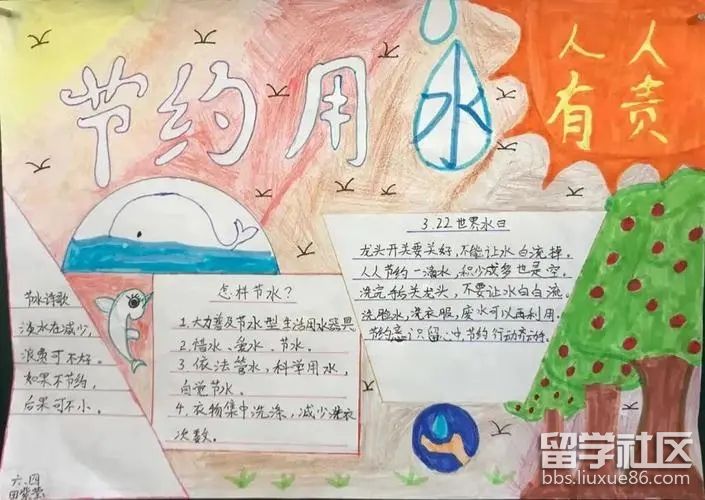 节约用水
人人
有责
节水诗歌
淡水在减少,
浪费可不好。
如果不节约,
后果可不小。
怎样节水?
1.大力普及节水型生活用水器具
2.惜水、爱水、节水。
3.依法管水,科学用水,
自觉节水。
4.衣物集中洗涤,减少洗衣
次数。
3.22世界水日
龙头开关要关好,不能让水白流掉。
人人节约一滴水,积少成多也是宝。
洗完手关龙头,不要让水白白流。
洗脸水,洗衣服,废水可以再利用。
节约意识留心中,节约行动
六.四
留学社区
bbs.liuxue86.com